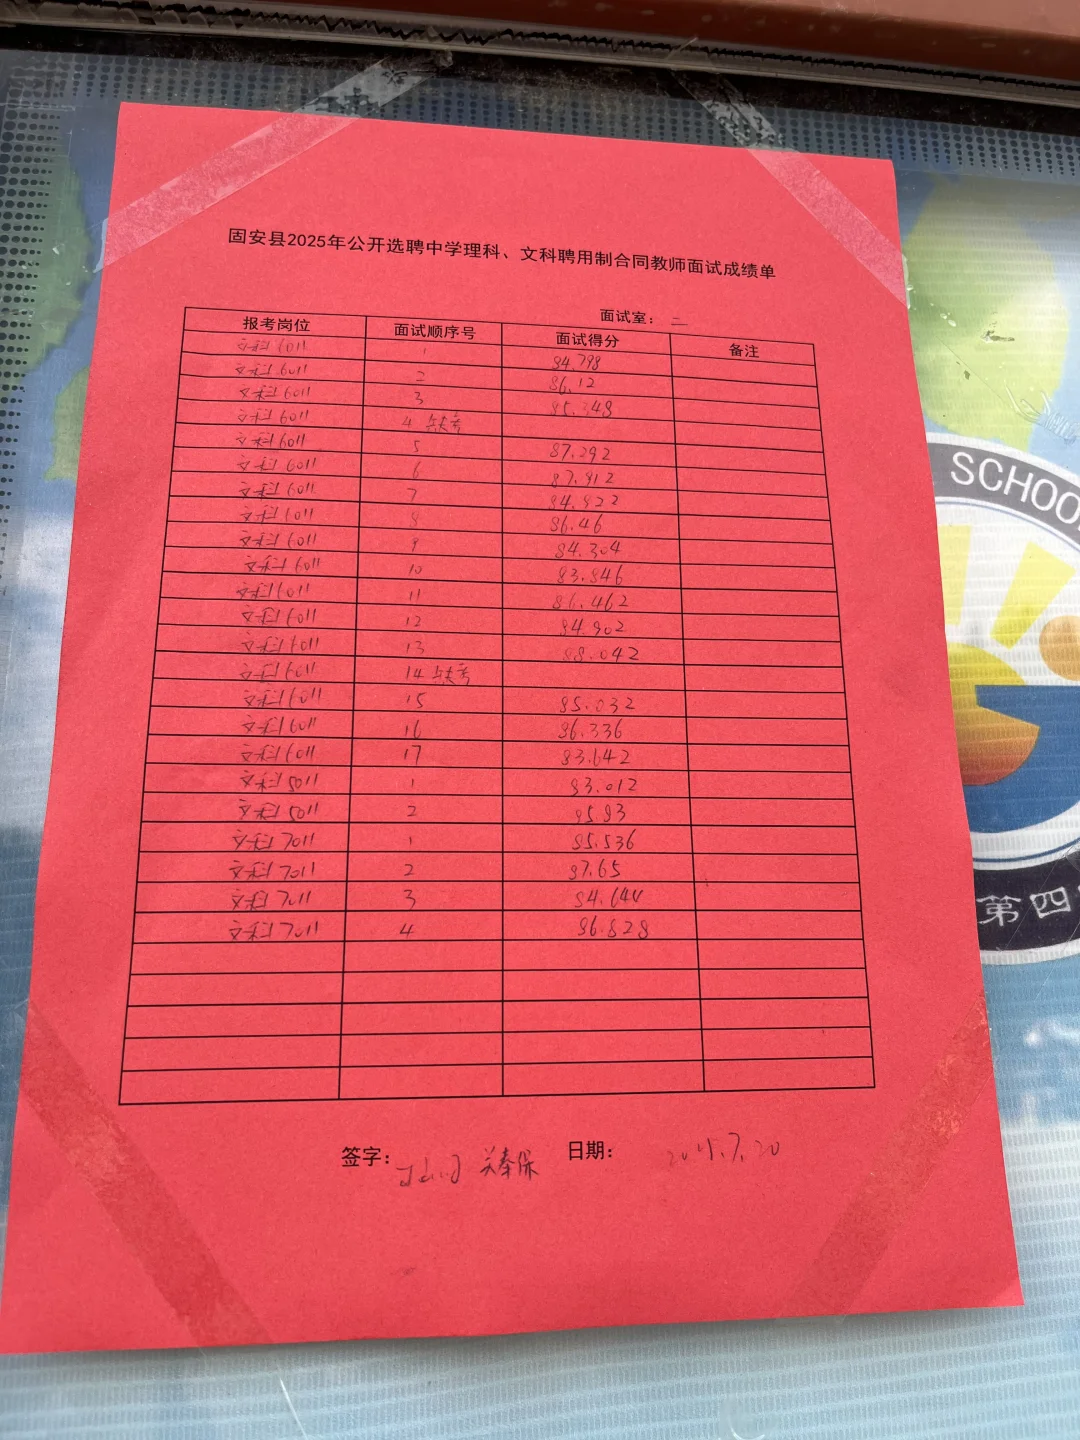 固安县2025年公开选聘中学理科、文科聘用制合同教师面试成绩单
面试室： 二
报考岗位 面试顺序号 面试得分 备注
文科6011 1 84.798
文科6011 2 86.12
文科6011 3 85.348
文科6011 4 缺考
文科6011 5 87.292
文科6011 6 87.912
文科6011 7 84.922
文科6011 8 86.46
文科6011 9 84.304
文科6011 10 83.846
文科6011 11 86.462
文科6011 12 84.902
文科6011 13 88.042
文科6011 14 缺考
文科6011 15 85.032
文科6011 16 86.336
文科6011 17 83.642
文科5011 1 83.012
文科5011 2 85.83
文科7011 1 85.536
文科7011 2 87.65
文科7011 3 84.644
文科7011 4 86.828
签字： 关奉保 日期： 2025.7.20
SCHOO
第四